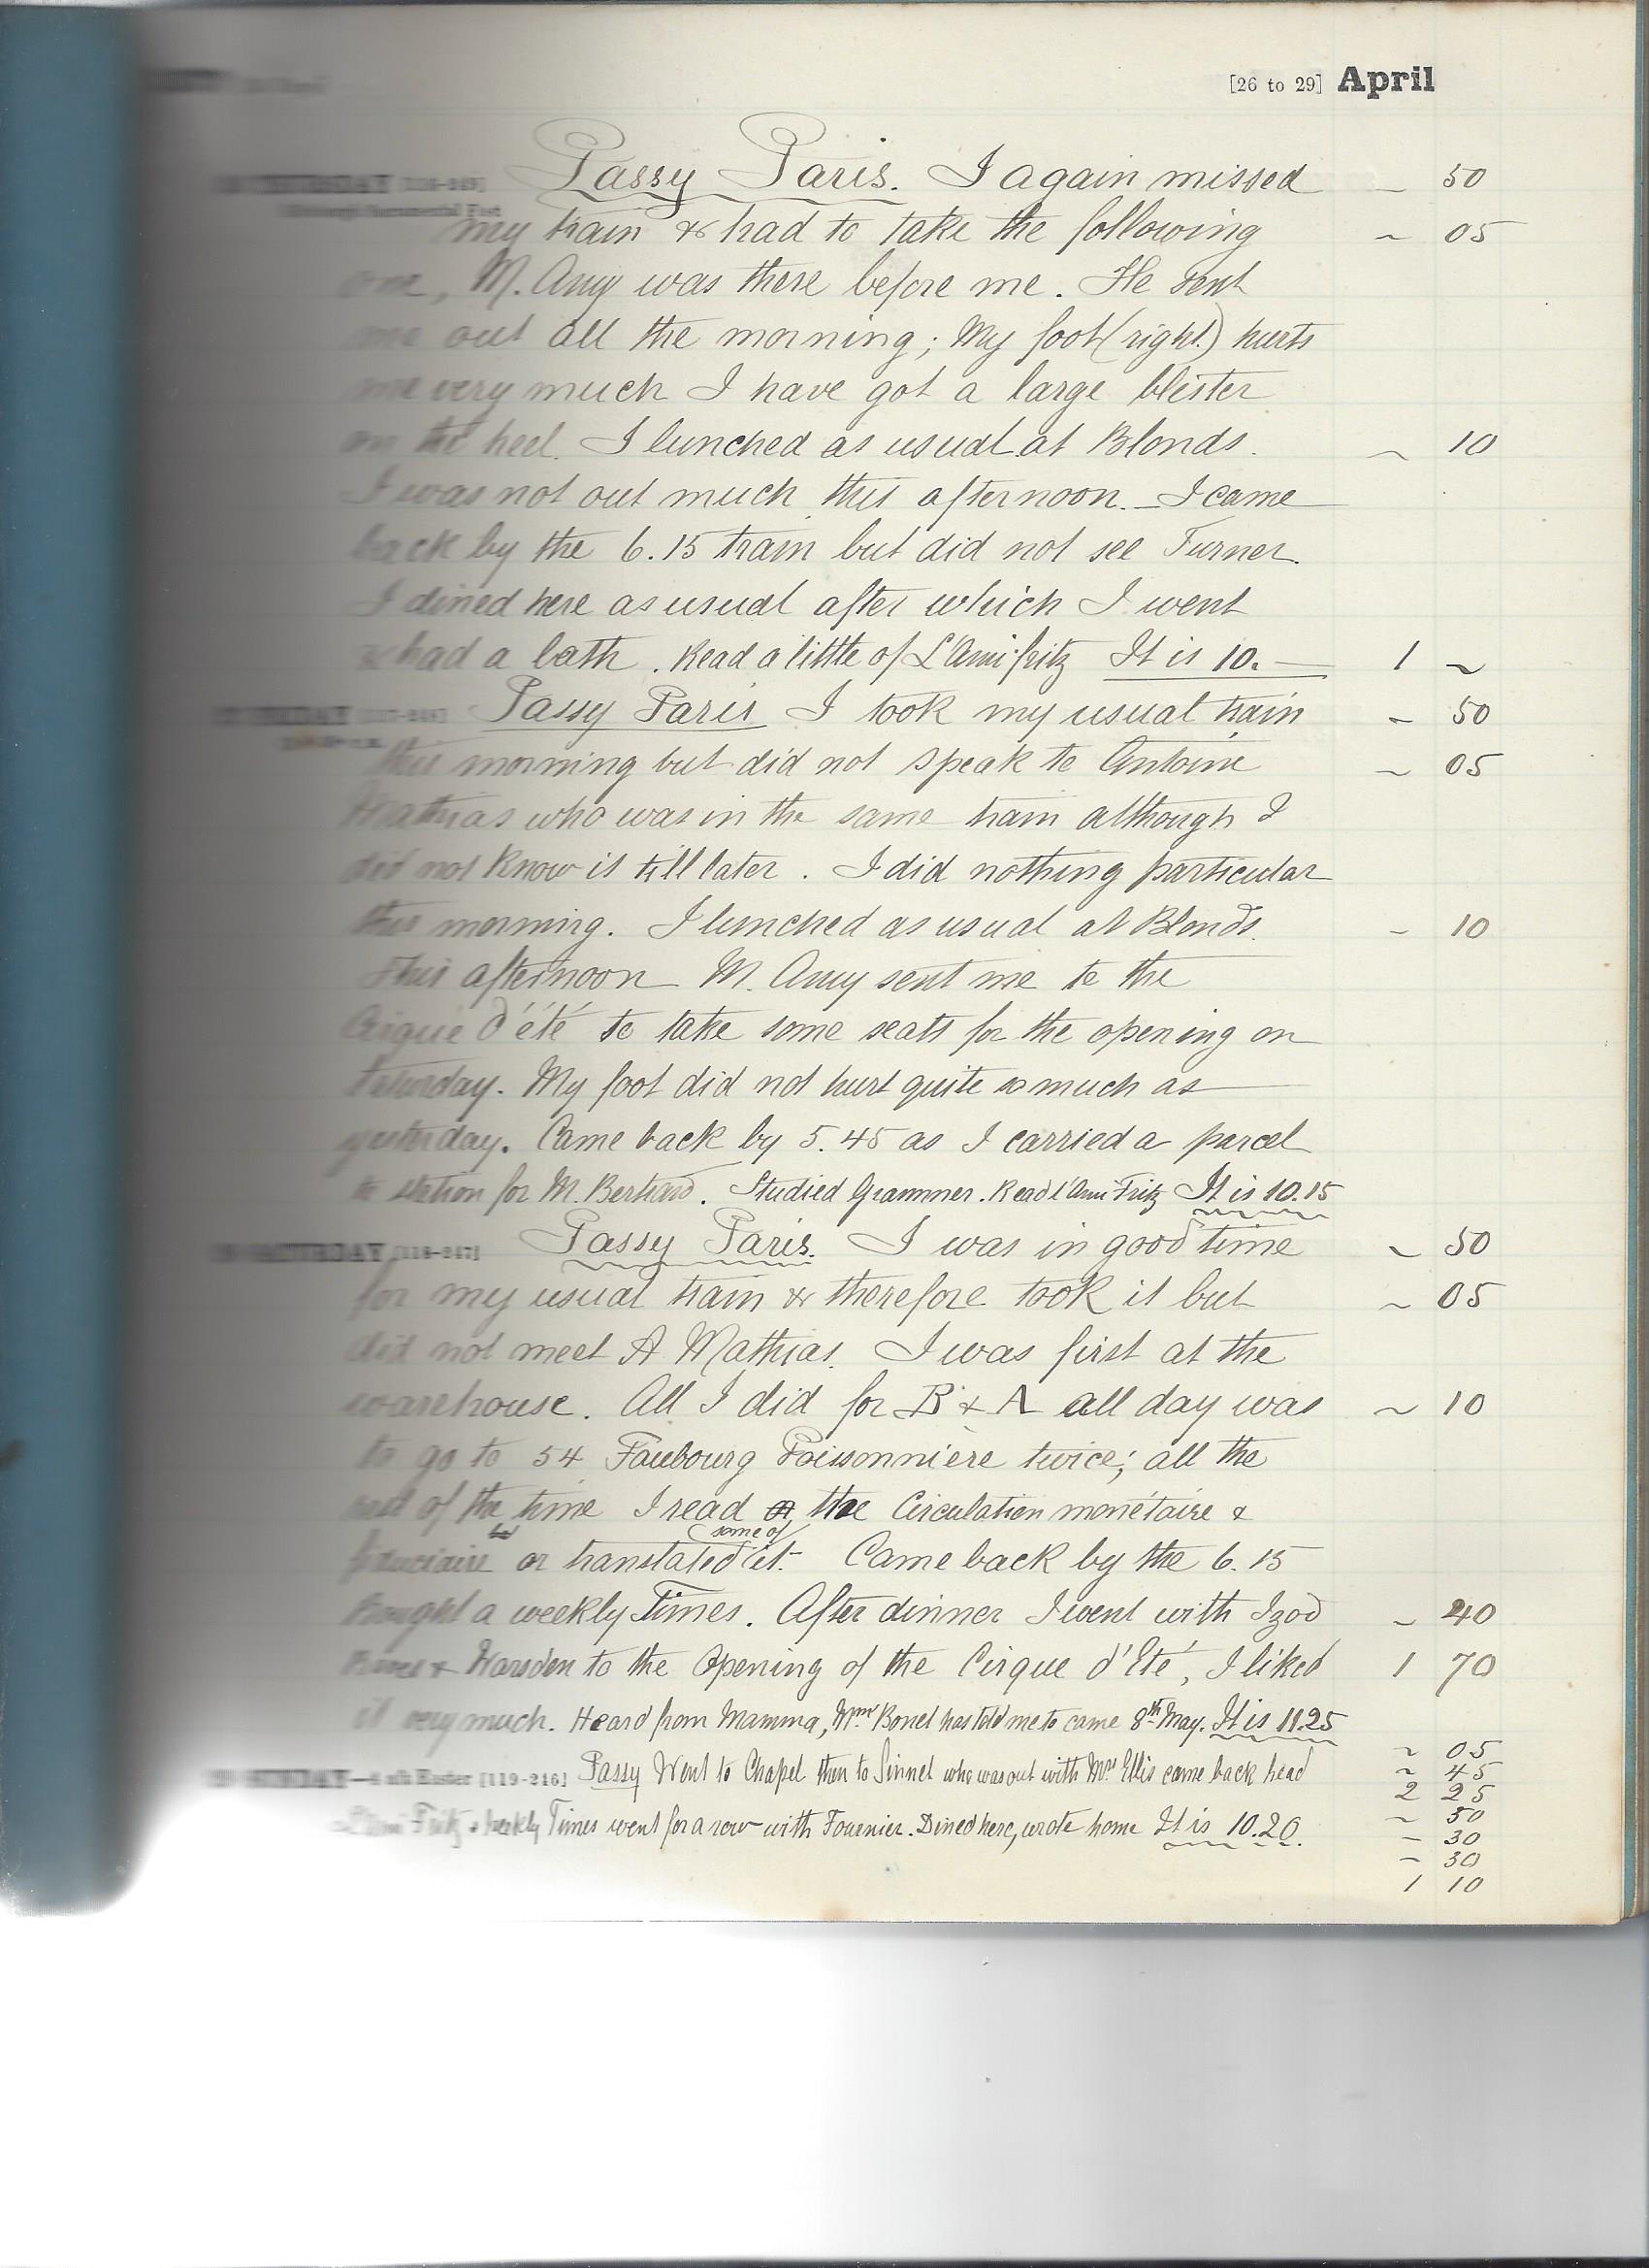 [26 to 29] April
THURSDAY [116-249] Passy Paris. I again missed — 50
my train & had to take the following ~ 05
one, M. Amy was there before me. He sent
me out all the morning; My foot (right) hurts
me very much I have got a large blister
on the heel. I lunched as usual at Blonds. ~ 10
I was not out much this afternoon. — I came
back by the 6.15 train but did not see Turner.
I dined here as usual after which I went
& had a bath. Read a little of L'Ami fritz It is 10. — 1 ~
FRIDAY [117-248] Passy Paris I took my usual train ~ 50
this morning but did not speak to Antoine ~ 05
Mathias who was in the same train although I
did not know it till later. I did nothing particular
this morning. I lunched as usual at Blonds. ~ 10
This afternoon M. Amy sent me to the
Cirque d'été to take some seats for the opening on
Saturday. My foot did not hurt quite so much as
yesterday. Came back by 5.45 as I carried a parcel
to station for M. Bertrand. Studied Grammer. Read l'Ami Fritz It is 10.15
SATURDAY [118-247] Passy Paris. I was in good time ~ 50
for my usual train & therefore took it but ~ 05
did not meet A Mathias. I was first at the
warehouse. All I did for B & A all day was ~ 10
to go to 54 Faubourg Poissonnière twice; all the
rest of the time I read the Circulation monétaire &
fiduciaire or translated (some of) it. Came back by the 6.15
Bought a weekly Times. After dinner I went with Izod ~ 40
& Harsden to the Opening of the Cirque d'Eté, I liked 1 70
it very much. Heard from Mamma, Mme Bonet has told me to came 8th May. It is 11.25
SUNDAY—4 aft Easter [119-246] Passy Went to Chapel then to Sinnet who was out with Mrs Ellis came back head
L'Ami Fritz & weekly Times went for a row with Fournier. Dined here, wrote home It is 10.20.
~ 05
~ 45
2 25
~ 50
— 30
— 30
1 10